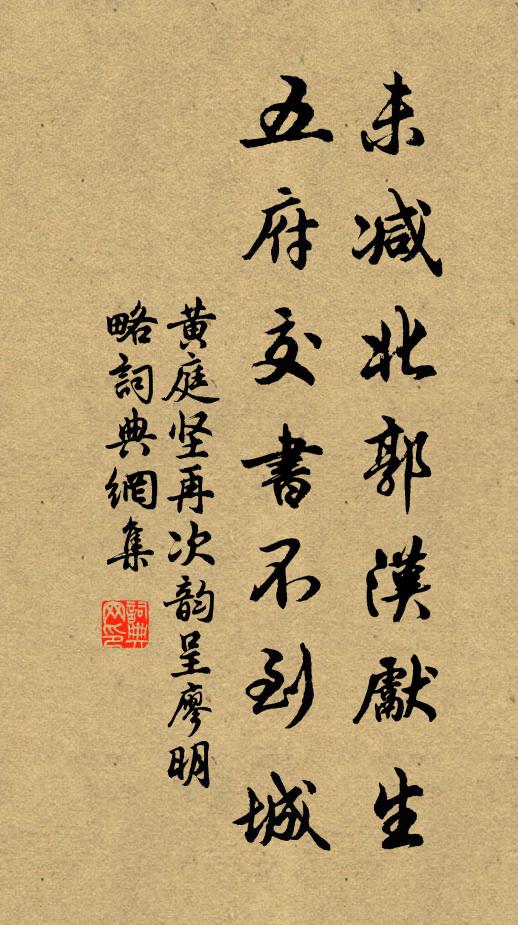 未减北郭漢獻生
五府交書不到城
黄庭坚再次韵呈廖明
略詞典網集
詞典
网印